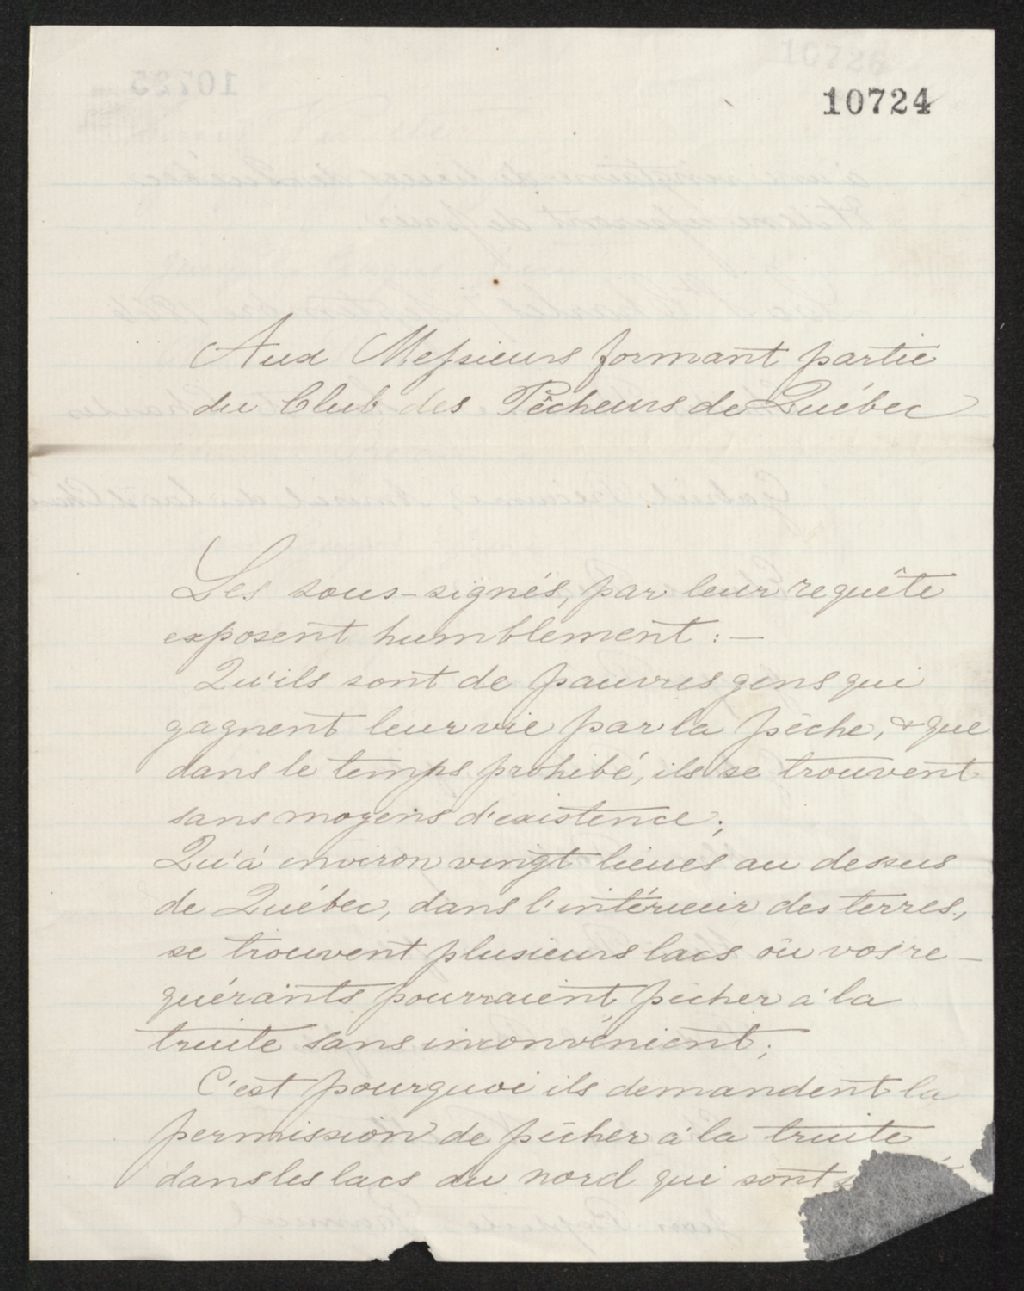 10724
Aux Messieurs formant partie
du Club des Pêcheurs de Québec
Les sous-signés, par leur requête
exposent humblement : —
Qu'ils sont de pauvres gens qui
gagnent leur vie par la pêche, & que
dans le temps prohibé, ils se trouvent
sans moyens d'existence;
Qu'à environ vingt lieues au dessus
de Québec, dans l'intérieur des terres,
se trouvent plusieurs lacs où vos re-
quérants pourraient pêcher à la
truite sans inconvénient;
C'est pourquoi ils demandent la
permission de pêcher à la truite
dans les lacs du nord qui sont